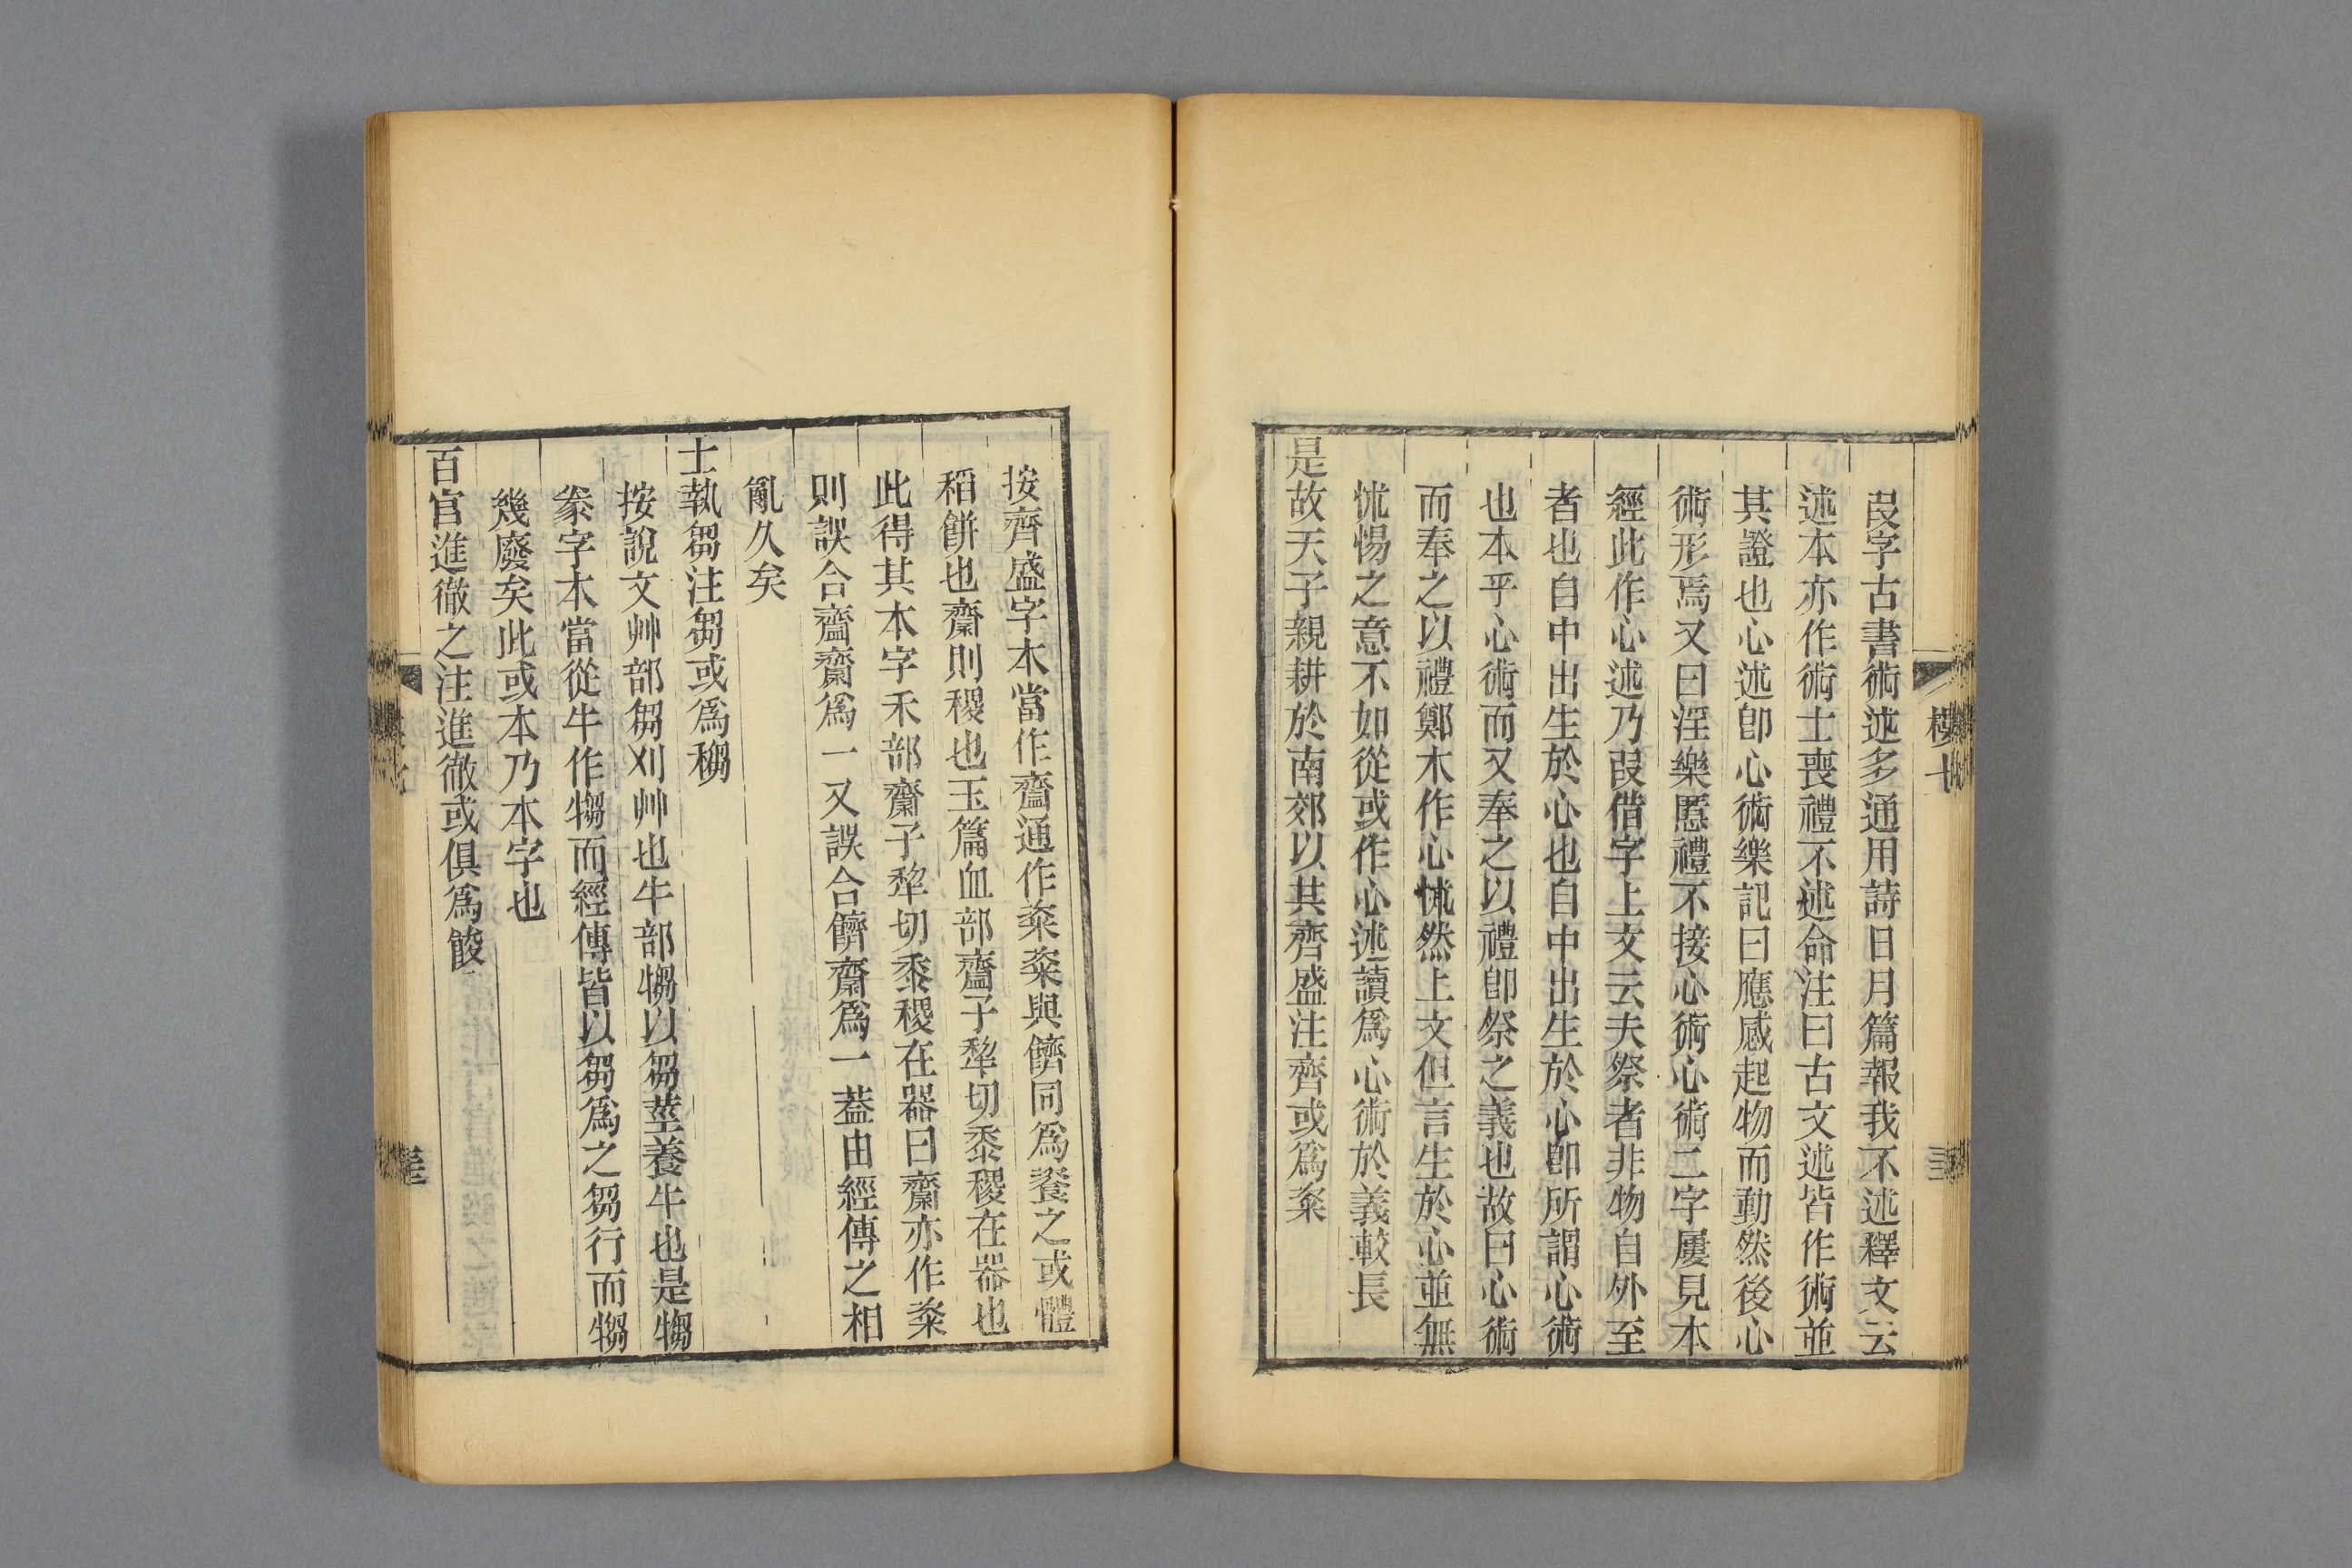 叚字古書術述多通用詩日月篇報我不述釋文云
述本亦作術士喪禮不述命注曰古文述皆作術並
其證也心述卽心術樂記曰應感起物而動然後心
術形焉又曰淫樂慝禮不接心術心術二字屢見本
經此作心述乃叚借字上文云夫祭者非物自外至
者也自中出生於心也自中出生於心卽所謂心術
也本乎心術而又奉之以禮卽祭之義也故曰心術
而奉之以禮鄭本作心怵然上文但言生於心並無
怵惕之意不如從或作心述讀爲心術於義較長
是故天子親耕於南郊以其齊盛注齊或爲粢
按齊盛字本當作齍通作粢粢與餈同爲餈之或體
稻餠也齋則稷也玉篇皿部齍子犂切黍稷在器也
此得其本字禾部齋子犂切黍稷在器曰齋亦作粢
則誤合齍齋爲一又誤合餈齋爲一葢由經傳之相
亂久矣
士執芻注芻或爲穐
按說文艸部芻刈艸也牛部犓以芻莖養牛也是犓
豢字本當從牛作犓而經傳皆以芻爲之芻行而犓
幾廢矣此或本乃本字也
百官進徹之注進徹或俱爲餕